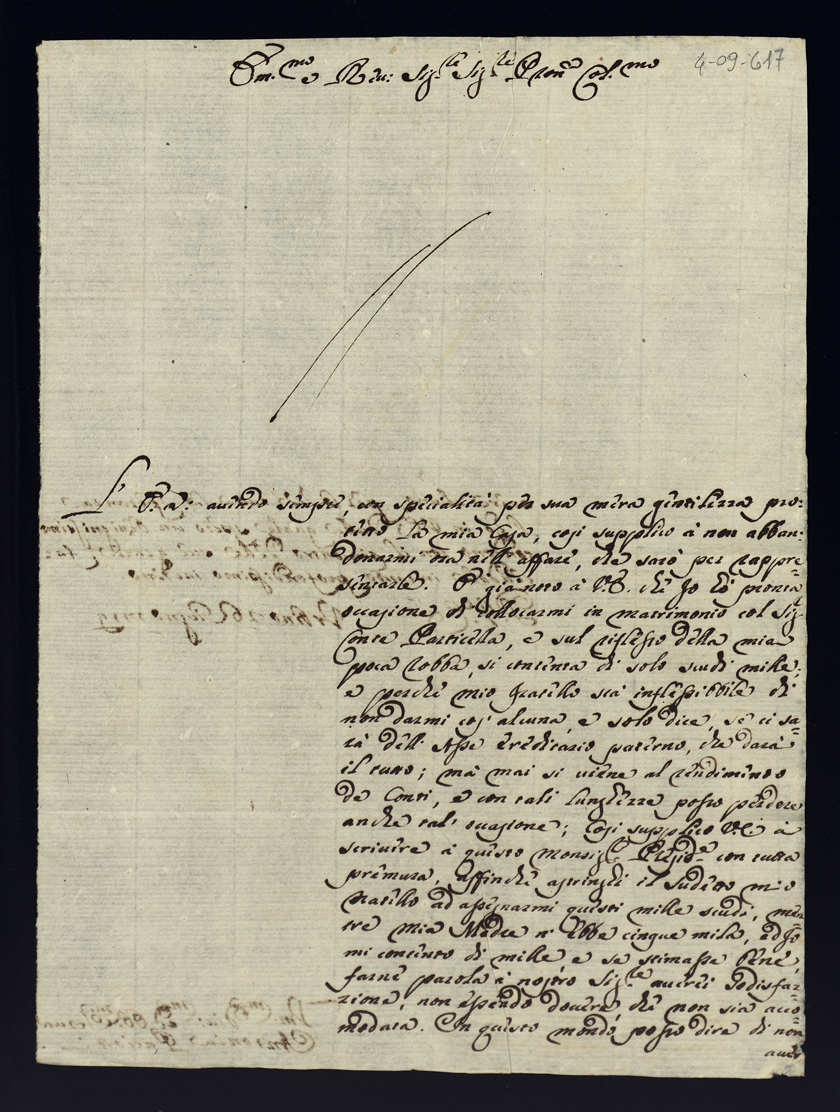 4-09-617
Em.mo e Reu: Sig.re Sig.re Pron Col.mo
L' E. V: auendo sempre, con specialità per sua mera gentilezza pro:
tetto la mia Casa, cosi supplico à non abban:
donarmi ora nell' affare, che sarò per rappre=
sentarle. E già noto à V.E. che Jo hò pronta
occasione di collocarmi in matrimonio col Sig.
Conte Particella, e sul riflesso della mia
poca robba, si contenta di solo scudi mille;
e perche mio fratello stà inflessibbile di
non darmi cos' alcuna, e solo dice, se ci sa=
rà dell' Asse Ereditario paterno, che darà
il tutto; mà mai si uiene al rendimento
de Conti, e con tali lunghezze posso perdere
anche tal' occasione; Cosi supplico V.E. à
scriuere à questo Monsig.r Presid.e con tutta
premura, affinche astringhi il sudetto mio
fratello ad assegnarmi questi mille scudi, men
tre mia Madre n' Ebbe cinque mila, ed Jo
mi contento di mille e se stimasse bene
farne parola à nostro Sig.re auerei sodisfaz=
zione, non essendo douere che non sia acco=
modata. In questo mondo posso dire di non
auer